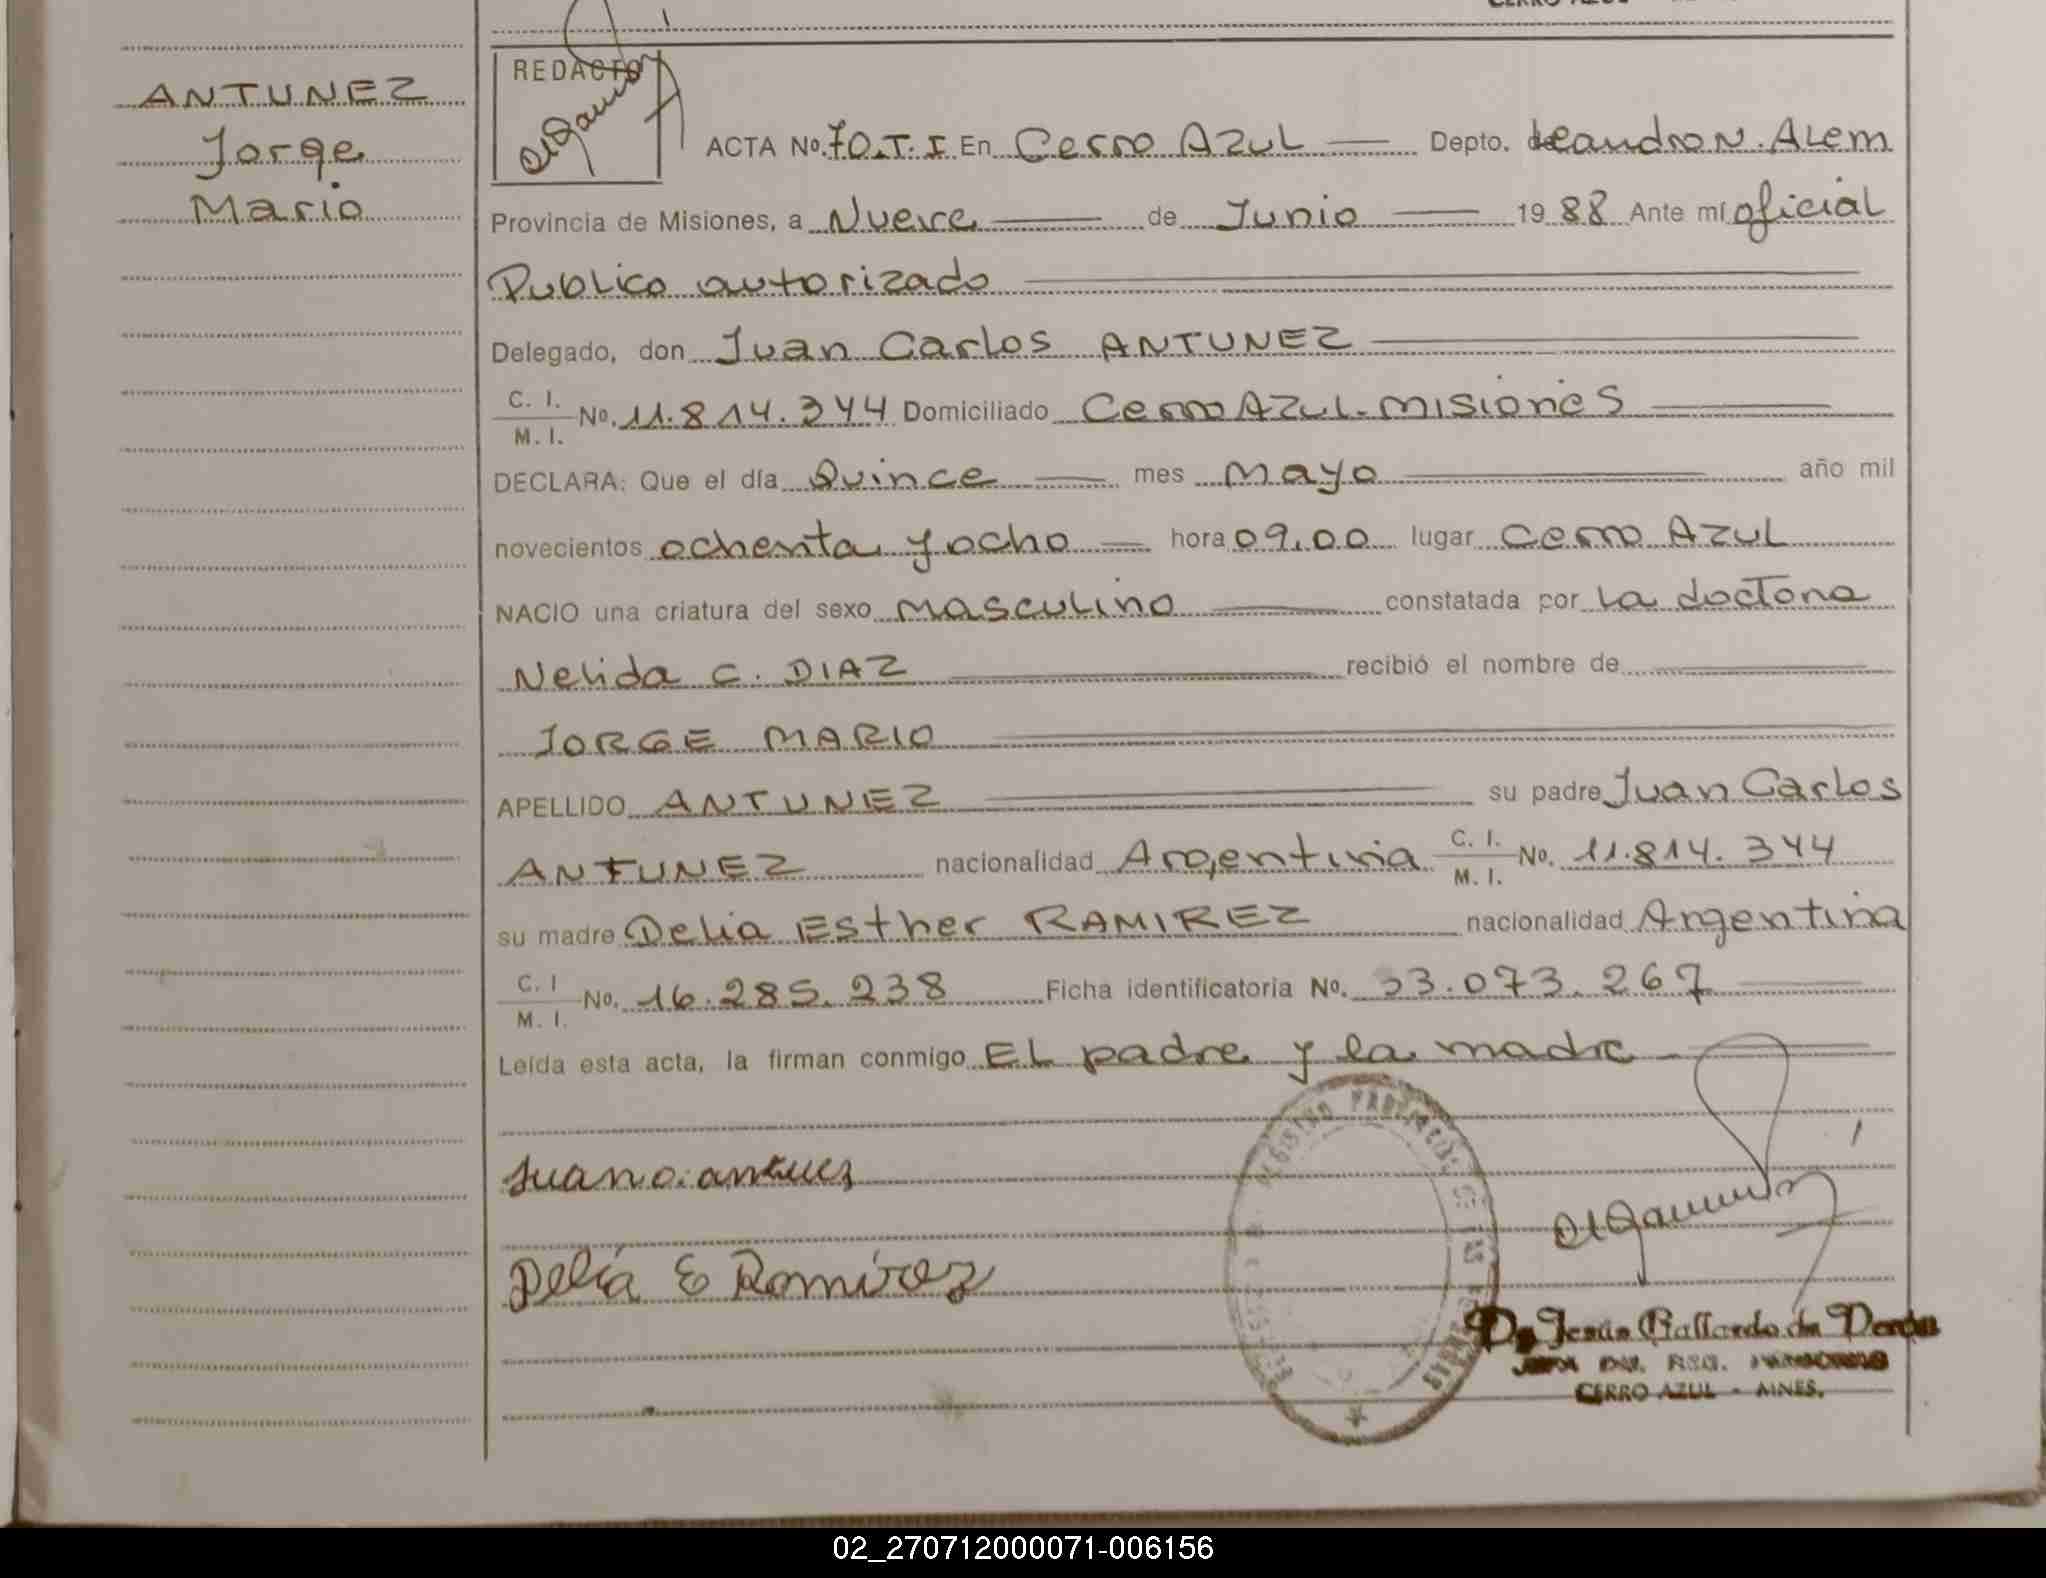 ANTUNEZ
Jorge
Mario
REDACTO
ACTA No. 70.T.I En Cerro Azul Depto. Leandro N. Alem
Provincia de Misiones, a Nueve de Junio 1988 Ante mí oficial
Publico autorizado
Delegado, don Juan Carlos ANTUNEZ
C. I.
M. I. No. 11.814.344 Domiciliado Cerro Azul-Misiones
DECLARA: Que el día Quince mes Mayo año mil
novecientos ochenta y ocho hora 09,00 lugar Cerro Azul
NACIO una criatura del sexo masculino constatada por La doctora
Nelida C. DIAZ recibió el nombre de
JORGE MARIO
APELLIDO ANTUNEZ su padre Juan Carlos
ANTUNEZ nacionalidad Argentina C. I. M. I. No. 11.814.344
su madre Delia Esther RAMIREZ nacionalidad Argentina
C. I
M. I. No. 16.285.238 Ficha identificatoria No. 33.073.267
Leída esta acta, la firman conmigo El padre y la madre
Juan c. antunez
Delia E Ramirez
Jesús Gallardo de
CERRO AZUL -
02_270712000071-006156